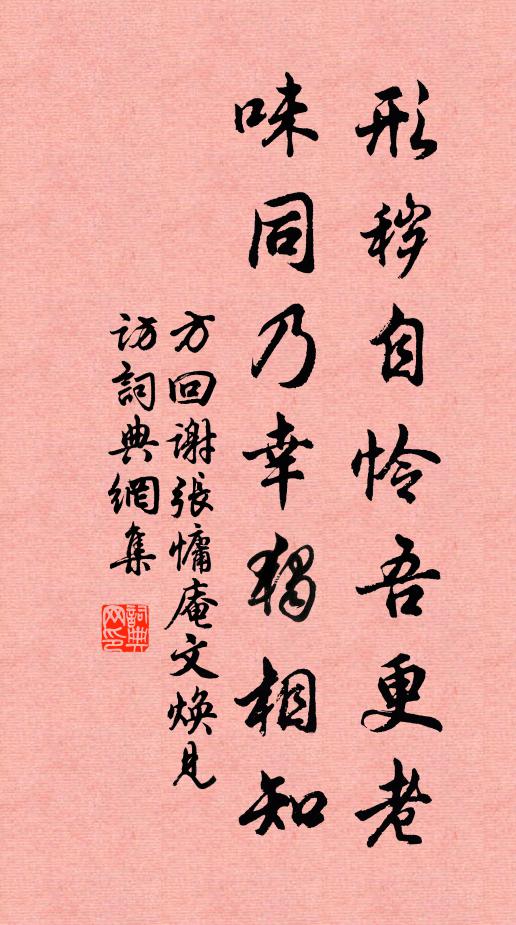 形穢自怜吾更老
味同乃幸獨相知
方回謝張慵庵文煥見
訪詞典網集
詞典網印